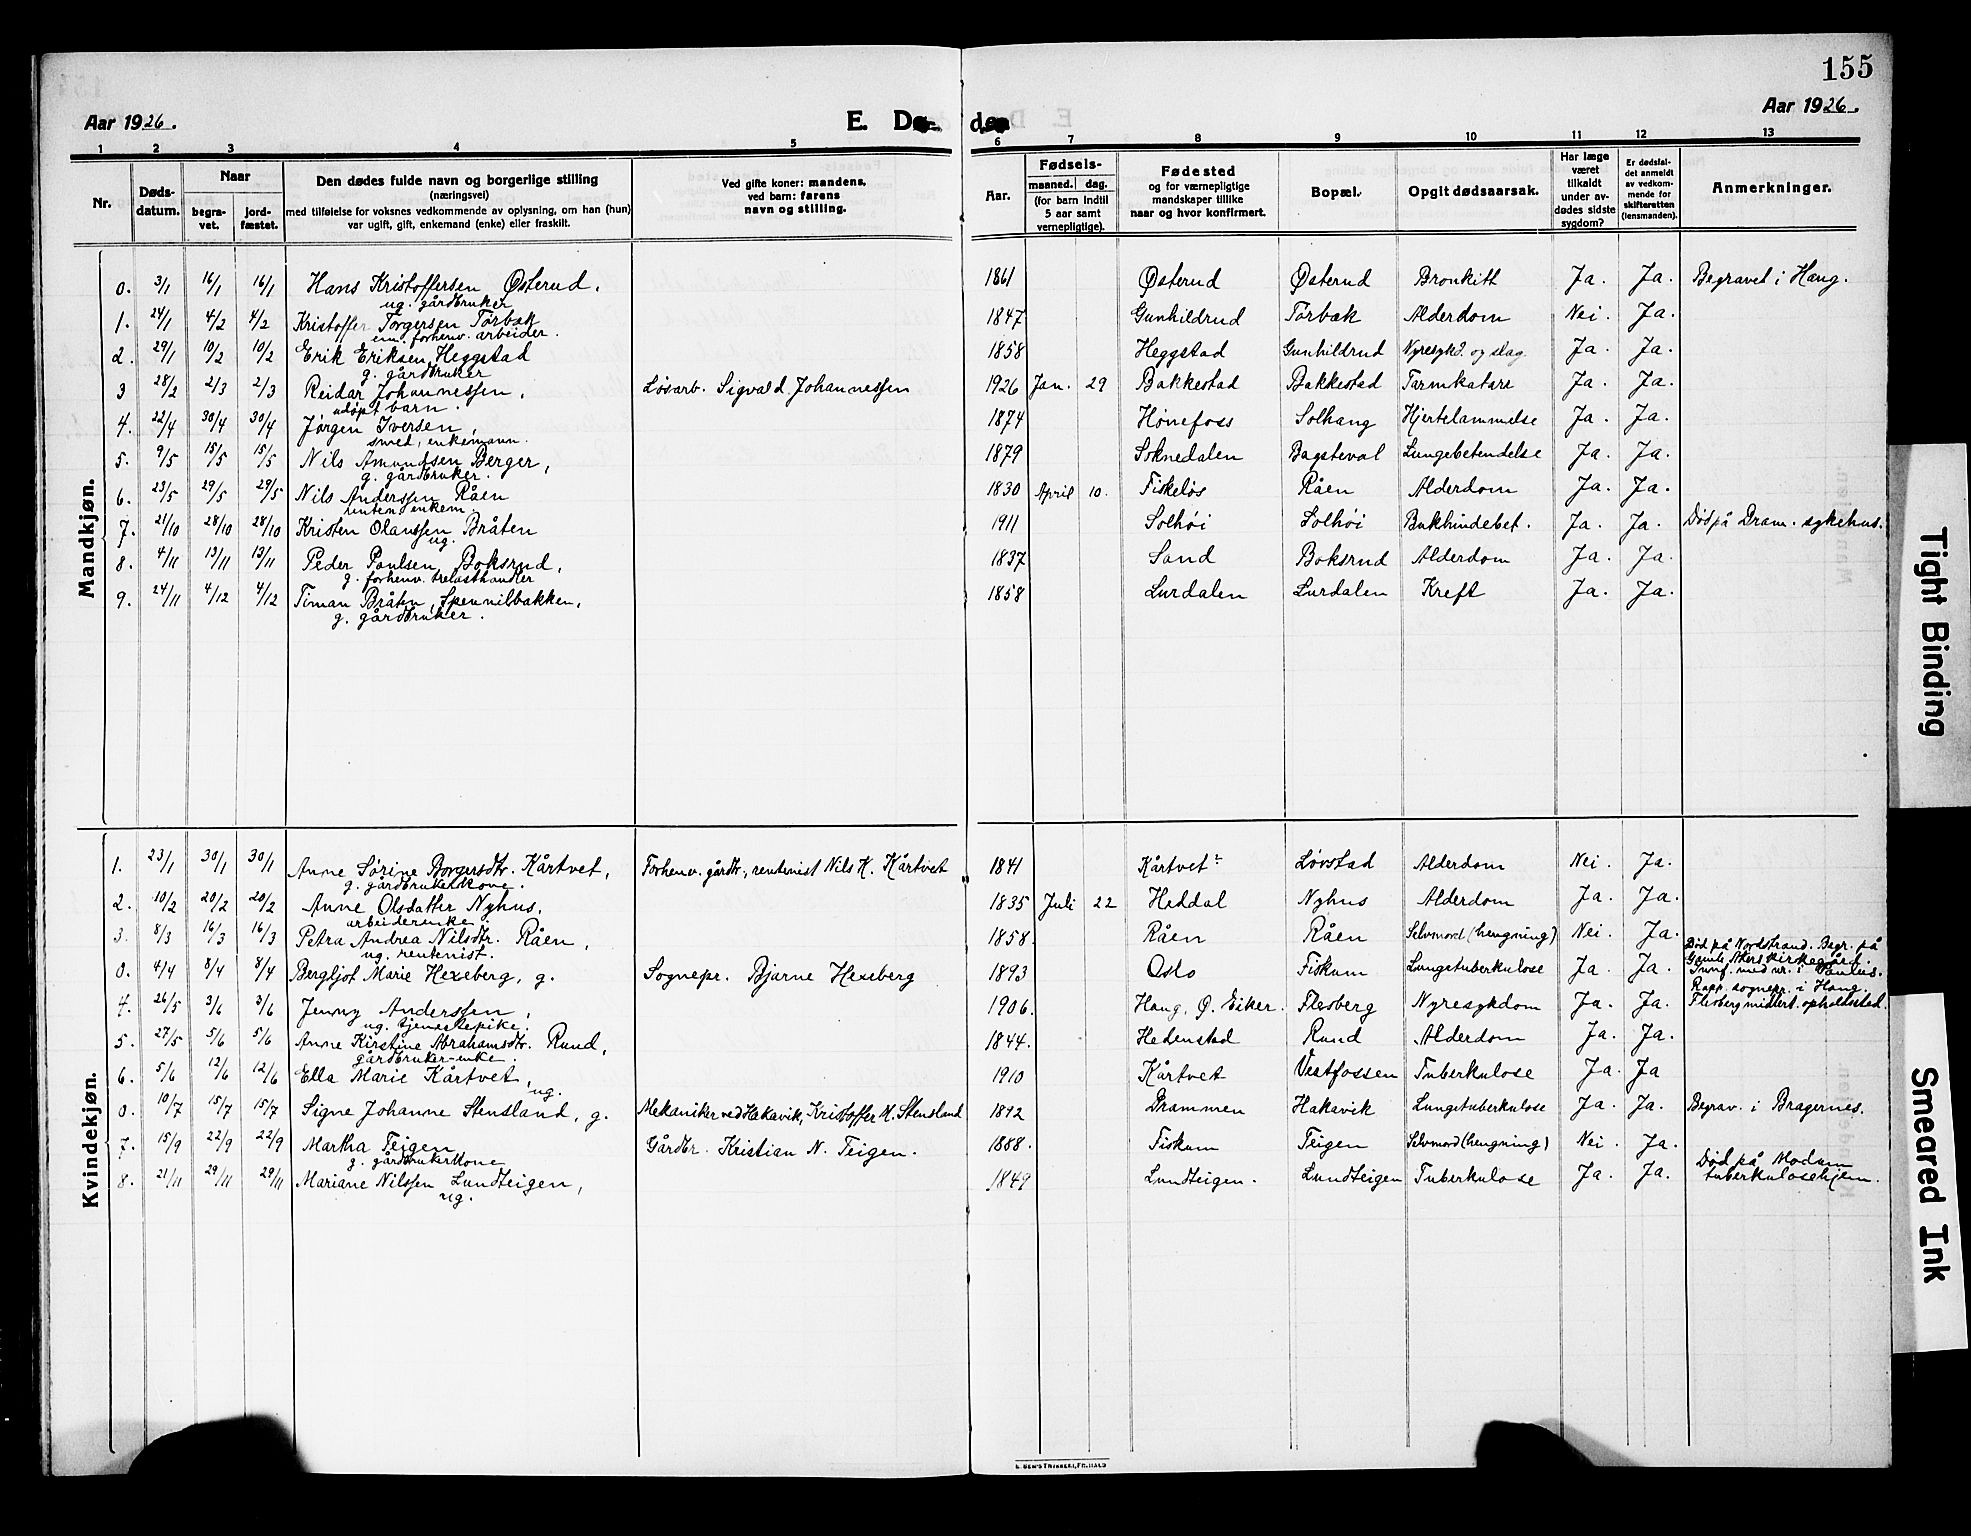 155
Aar 1926.
E. Døde
Aar 1926.
1 2 3 4 5 6 7 8 9 10 11 12 13
Nr.
Døds-
datum.
Naar
begra-
vet.
jord-
fæstet.
Den dødes fulde navn og borgerlige stilling
(næringsvei)
med tilføielse for voksnes vedkommende av oplysning, om han (hun)
var ugift, gift, enkemand (enke) eller fraskilt.
Ved gifte koner: mandens,
ved barn: farens
navn og stilling.
Aar.
Fødsels-
maaned. dag.
(for barn indtil
5 aar samt
vernepligtige).
Fødested
og for værnepligtige
mandskaper tillike
naar og hvor konfirmert.
Bopæl.
Opgit dødsaarsak.
Har læge
været
tilkaldt
under av-
dødes sidste
sygdom?
Er dødsfal-
det anmeldt
av vedkom-
mende for
skifteretten
(lensmanden).
Anmerkninger.
Mandkjøn.
0. 3/1 16/1 16/1 Hans Kristoffersen Østerud, 1861 Østerud Østerud Bronkitt Ja. Ja. Begravet i Haug.
ug. gårdbruker
1. 24/1 4/2 4/2 Kristoffer Torgersen Tørbak 1847 Gunhildrud Tørbak Alderdom Nei. Ja.
em. forhenv. arbeider.
2. 29/1 10/2 10/2 Erik Eriksen Heggstad 1858 Heggstad Gunhildrud Nyresykd. og slag. Ja. Ja.
g. gårdbruker
3 28/2 2/3 2/3 Reidar Johannessen, Løsarb. Sigvald Johannessen 1926 Jan. 29 Bakkestad Bakkestad Tarmkatarr Ja. Ja.
udøpt barn.
4. 22/4 30/4 30/4 Jørgen Iversen, 1874 Hønefoss Solhaug Hjertelammelse Ja. Ja.
smed, enkemann.
5. 9/5 15/5 15/5 Nils Amundsen Berger, 1879 Soknedalen Bagstevol Lungebetendelse Ja. Ja.
g. gårdbruker.
6. 23/5 29/5 29/5 Nils Anderssen Råen 1830 April 10. Fiskeløs Råen Alderdom Ja. Ja.
enkem.
7. 21/10 28/10 28/10 Kristen Olaussen Bråten 1911 Solhøi Solhøi Bukhindebet. Ja. Ja. Død på Dram. sykehus.
ug.
8. 4/11 13/11 13/11 Peder Paulsen Boksrud, 1837 Sand Boksrud Alderdom Ja. Ja.
g. forhenv. trelasthandler
9. 24/11 4/12 4/12 Timan Bråten, Spennilbakken, 1858 Lurdalen Lurdalen Kreft Ja. Ja.
g. gårdbruker.
Kvindekjøn.
1. 23/1 30/1 30/1 Anne Sørine Borgersdtr. Kårtvet, Forhenv. gårdbr., rentenist Nils K. Kårtvet 1841 Kårtvet Løvstad Alderdom Nei. Ja.
g. gårdbrukerkone.
2. 10/2 20/2 20/2 Anne Olsdatter Nyhus, 1835 Juli 22 Heddal Nyhus Alderdom Ja. Ja.
arbeiderenke
3. 8/3 16/3 16/3 Petra Andrea Nilsdtr. Råen, 1858. Råen Råen Selvmord (hengning) Nei. Ja.
ug. rentenist.
Død på Nordstrand. Begr. på
Gamle Akers kirkegård.
0. 4/4 8/4 8/4 Bergljot Marie Hexeberg, g. Sognepr. Bjarne Hexeberg 1893 Oslo Fiskum Lungetuberkulose Ja. Ja.
Rapp. sognepr. i Haug.
4. 26/5 3/6 3/6 Jenny Anderssen, 1906. Haug, Ø. Eiker. Flesberg Nyresykdom Ja. Ja. Flesberg midlert. opholdssted.
ug. tjenestepike.
5. 27/5 5/6 5/6 Anne Kirstine Abrahamsdtr. Rund, 1844. Hedenstad Rund Alderdom Ja. Ja.
gårdbruker-enke.
6. 5/6 12/6 12/6 Ella Marie Kårtvet, 1910 Kårtvet Vestfossen Tuberkulose Ja. Ja
ug.
0. 10/7 15/7 15/7 Signe Johanne Stensland, g. Mekaniker ved Hakavik, Kristoffer K. Stensland 1892 Drammen Hakavik Lungetuberkulose Ja. Ja. Begrav. i Bragernes.
7. 15/9 22/9 22/9 Martha Teigen Gårdbr. Kristian N. Teigen. 1888. Fiskum Teigen Selvmord (hengning) Nei. Ja.
g. gårdbrukerkone
8. 21/11 29/11 29/11 Mariane Nilssen Lundteigen, 1849 Lundteigen. Lundteigen Tuberkulose Ja. Ja. Død på Modum
ug. tuberkulosehjem.
Tight Binding
Smeared Ink